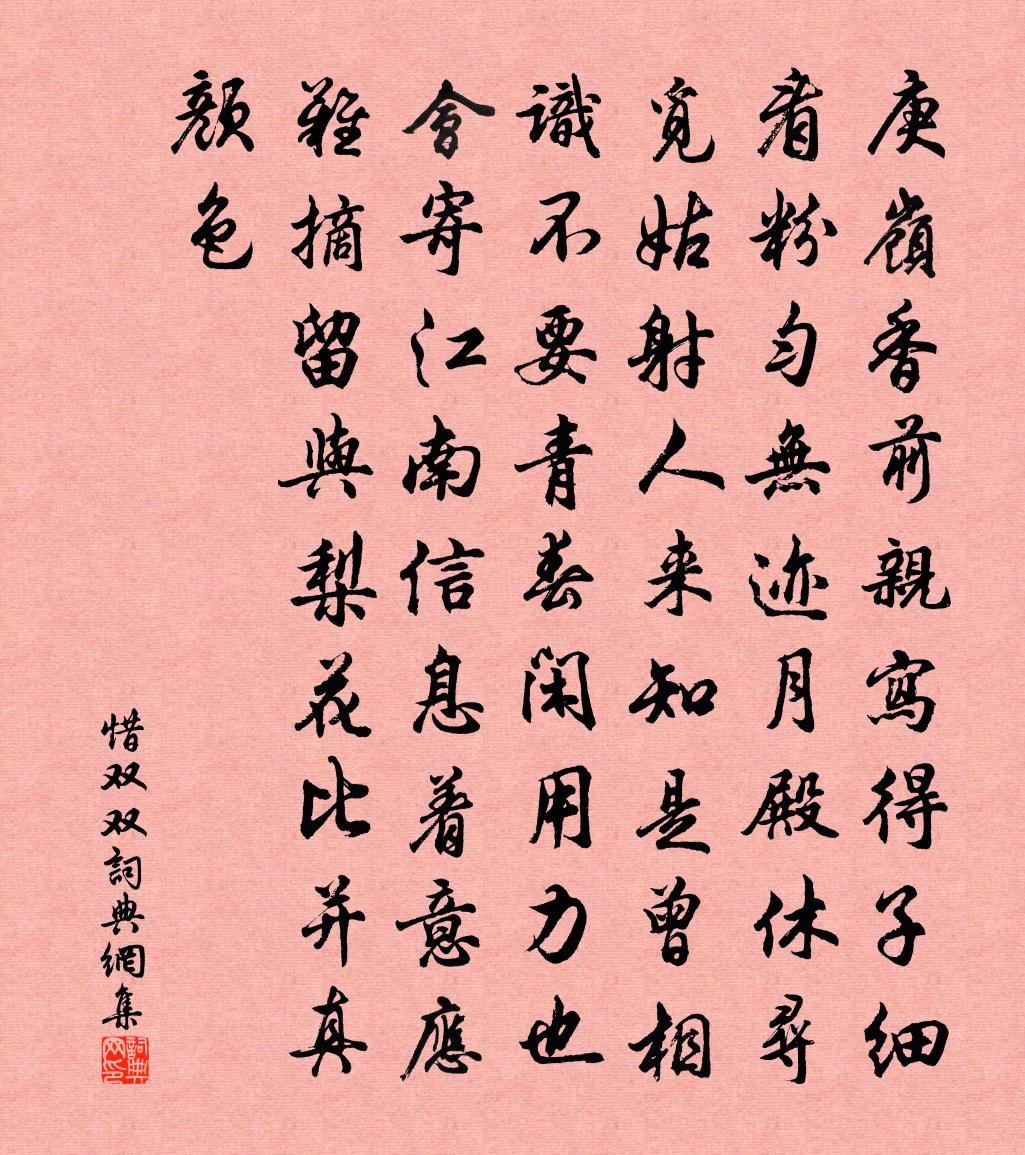 庾嶺香前親寫得子細
看粉勻無迹月殿休尋
覓姑射人来知是曾相
識不要青春閑用力也
會寄江南信息着意應
難摘留與梨花比并真
顔色
惜双双詞典網集
詞典网印